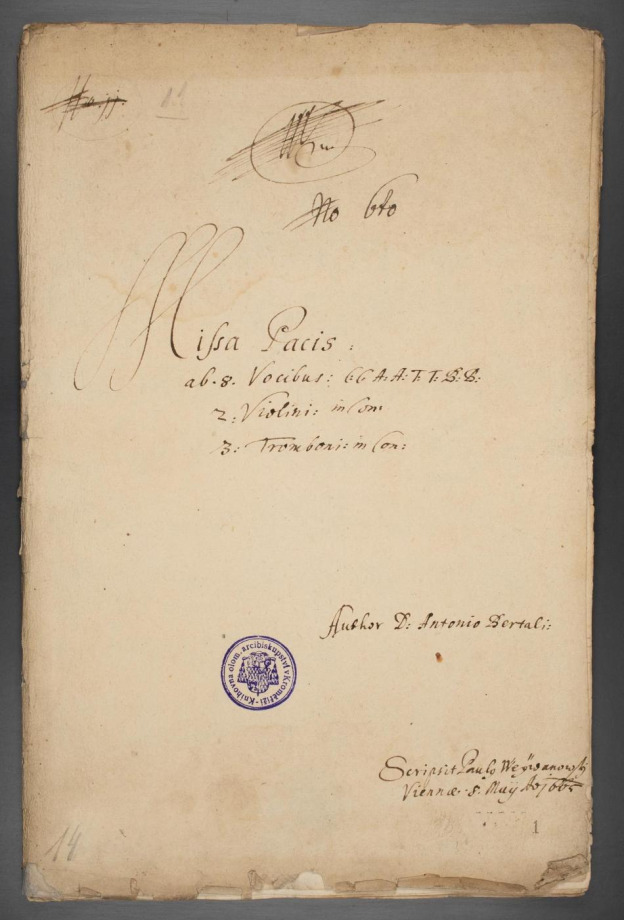 No 6to
Missa Pacis:
ab. 8. Vocibus: CC A: A: T: T: B: B:
2: Violini: in Con
3: Tromboni: in Con:
Author D: Antonio Bertali:
Knihovna olom. arcibiskupství v Kroměříži
Scripsit Paulo
Viennæ 8. Maÿ Ao
1
14